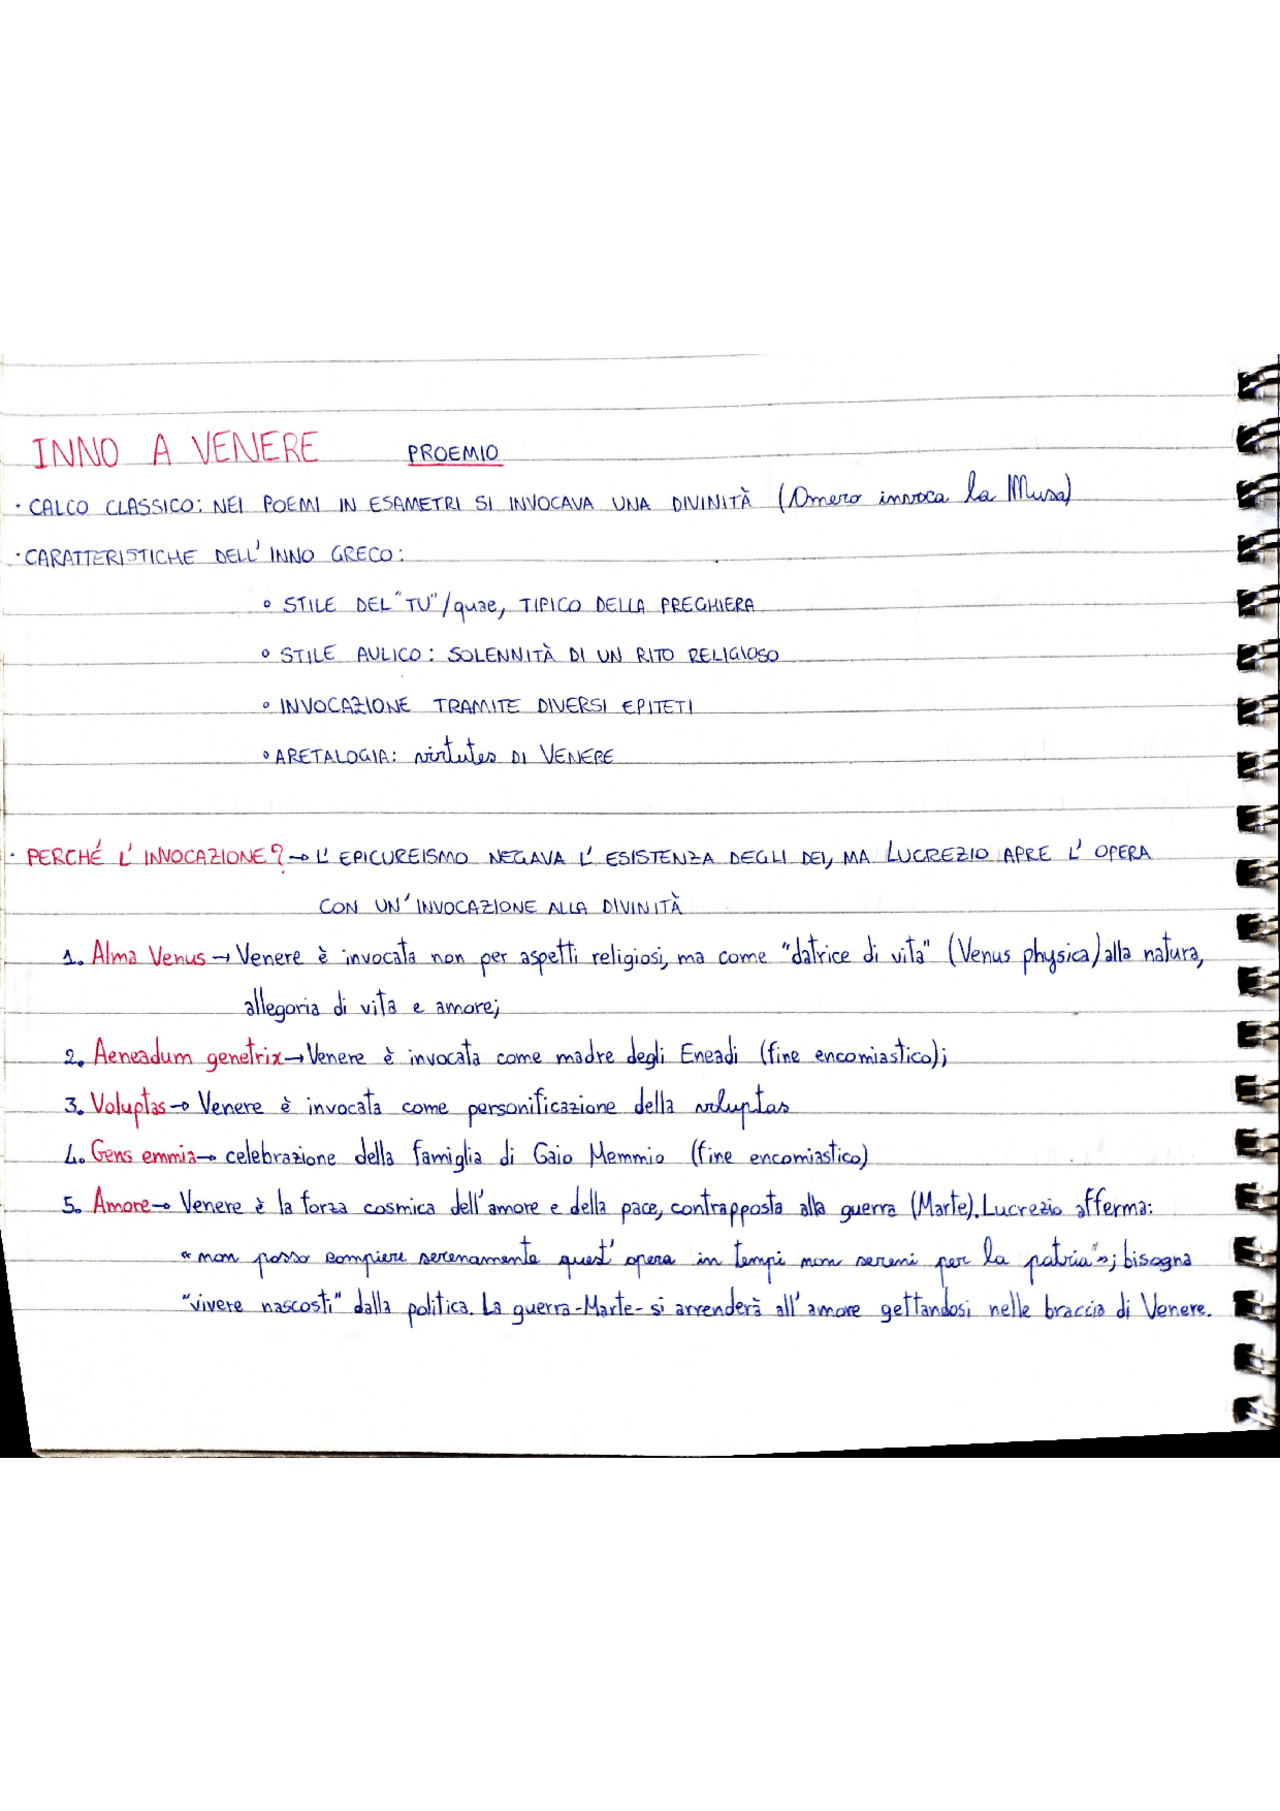 INNO A VENERE PROEMIO
· CALCO CLASSICO: NEI POEMI IN ESAMETRI SI INVOCAVA UNA DIVINITÀ (Omero invoca la Musa)
· CARATTERISTICHE DELL'INNO GRECO:
∘ STILE DEL "TU"/quae, TIPICO DELLA PREGHIERA
∘ STILE AULICO: SOLENNITÀ DI UN RITO RELIGIOSO
∘ INVOCAZIONE TRAMITE DIVERSI EPITETI
∘ ARETALOGIA: virtutes DI VENERE
· PERCHÉ L'INVOCAZIONE? → L'EPICUREISMO NEGAVA L'ESISTENZA DEGLI DEI, MA LUCREZIO APRE L'OPERA
CON UN'INVOCAZIONE ALLA DIVINITÀ
1. Alma Venus → Venere è invocata non per aspetti religiosi, ma come "datrice di vita" (Venus physica) alla natura,
allegoria di vita e amore;
2. Aeneadum genetrix → Venere è invocata come madre degli Eneadi (fine encomiastico);
3. Voluptas → Venere è invocata come personificazione della voluptas
4. Gens emmia → celebrazione della famiglia di Gaio Memmio (fine encomiastico)
5. Amore → Venere è la forza cosmica dell'amore e della pace, contrapposta alla guerra (Marte). Lucrezio afferma:
"non posso compiere serenamente quest'opera in tempi non sereni per la patria"; bisogna
"vivere nascosti" dalla politica. La guerra-Marte-si arrenderà all'amore gettandosi nelle braccia di Venere.